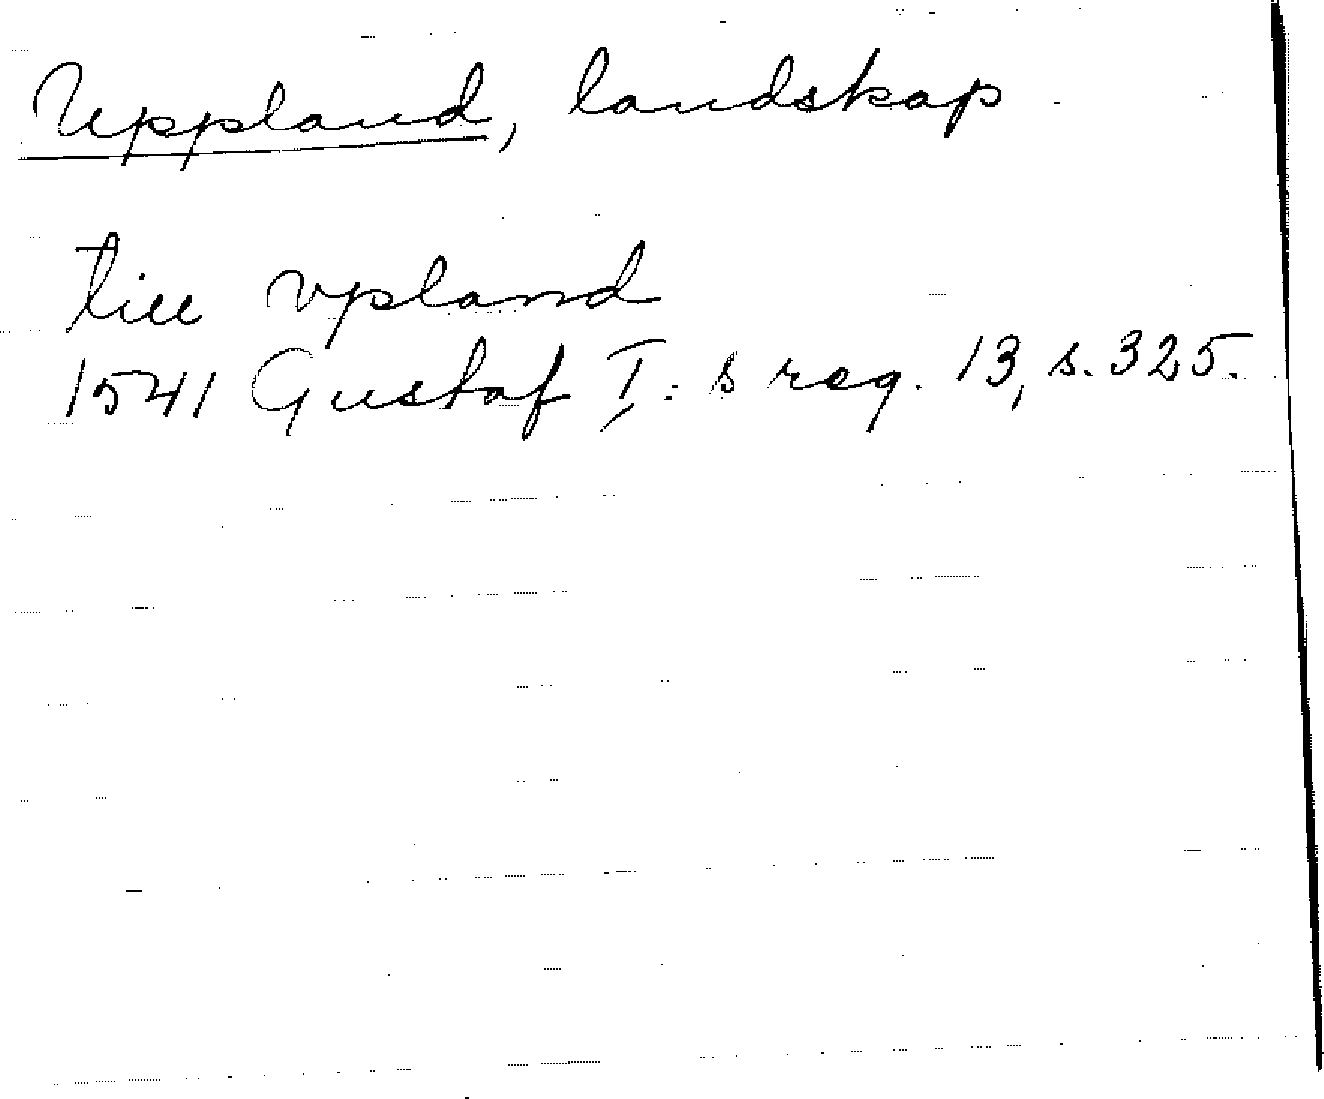 Uppland, landskap
till vpland
1541 Gustaf I:s reg. 13, s. 325.